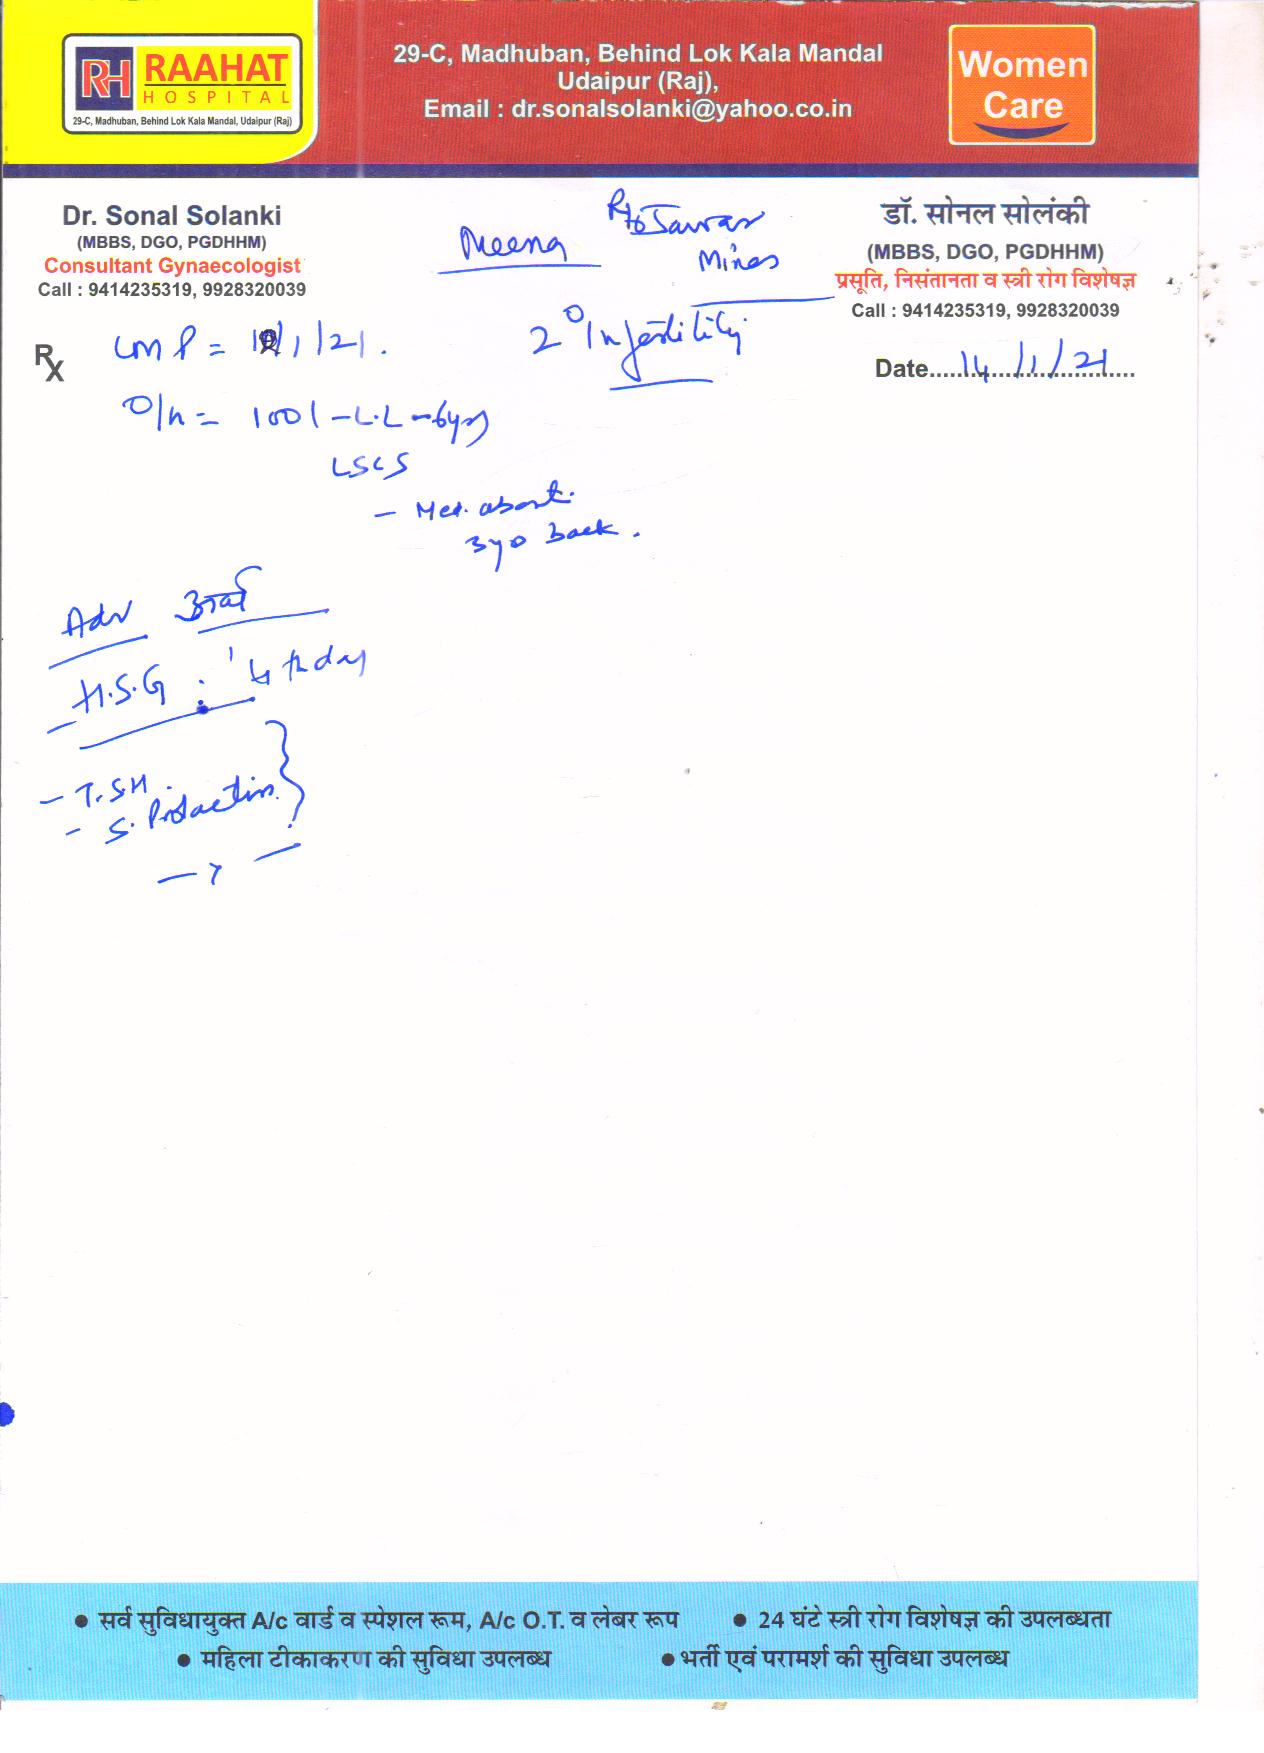 RH RAAHAT
HOSPITAL
29-C, Madhuban, Behind Lok Kala Mandal, Udaipur (Raj)
29-C, Madhuban, Behind Lok Kala Mandal
Udaipur (Raj),
Email : dr.sonalsolanki@yahoo.co.in
Women
Care
Dr. Sonal Solanki
(MBBS, DGO, PGDHHM)
Consultant Gynaecologist
Call : 9414235319, 9928320039
Meena
R/o Jawar
Mines
डॉ. सोनल सोलंकी
(MBBS, DGO, PGDHHM)
प्रसूति, निसंतानता व स्त्री रोग विशेषज्ञ
Call : 9414235319, 9928320039
Rx LMP = /1/21.
2° Infertility
Date 14/1/21
O/h = 1001 - L.L - 6yrs
LSCS
- Med. abort.
3yo back.
Adv
- H.S.G :
- T.SH.
- S. Prolactin
सर्व सुविधायुक्त A/c वार्ड व स्पेशल रूम, A/c O.T. व लेबर रूप
24 घंटे स्त्री रोग विशेषज्ञ की उपलब्धता
महिला टीकाकरण की सुविधा उपलब्ध
भर्ती एवं परामर्श की सुविधा उपलब्ध